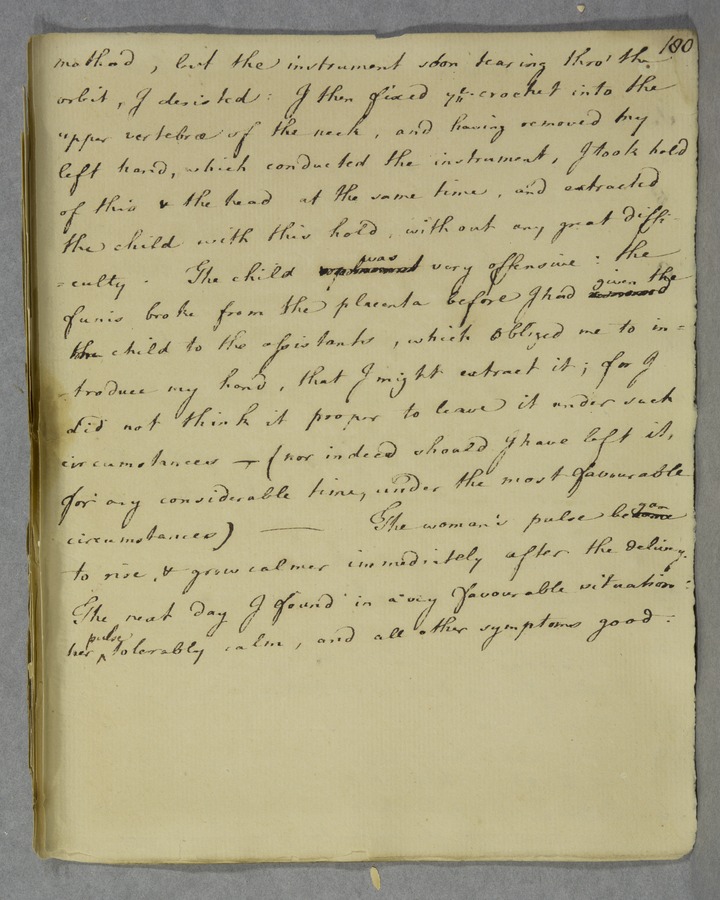 180
method, but the instrument soon tearing thro' the
orbit, I desisted: I then fixed ye. crochet into the
upper vertebræ of the neck, and having removed my
left hand, which conducted the instrument, I took hold
of this & the head at the same time, and extracted
the child with this hold, without any great diffi-
=culty. The child was very offensive: the
funis broke from the placenta before I had given the
child to the assistants, which obliged me to in=
-troduce my hand, that I might extract it; for I
did not think it proper to leave it under such
circumstances — (nor indeed should I have left it,
for any considerable time, under the most favourable
circumstances) — The woman's pulse began
to rise, & grow calmer immediately after the delivery.
The next day I found in a very favourable situation:
her pulse tolerably calm, and all other symptoms good.